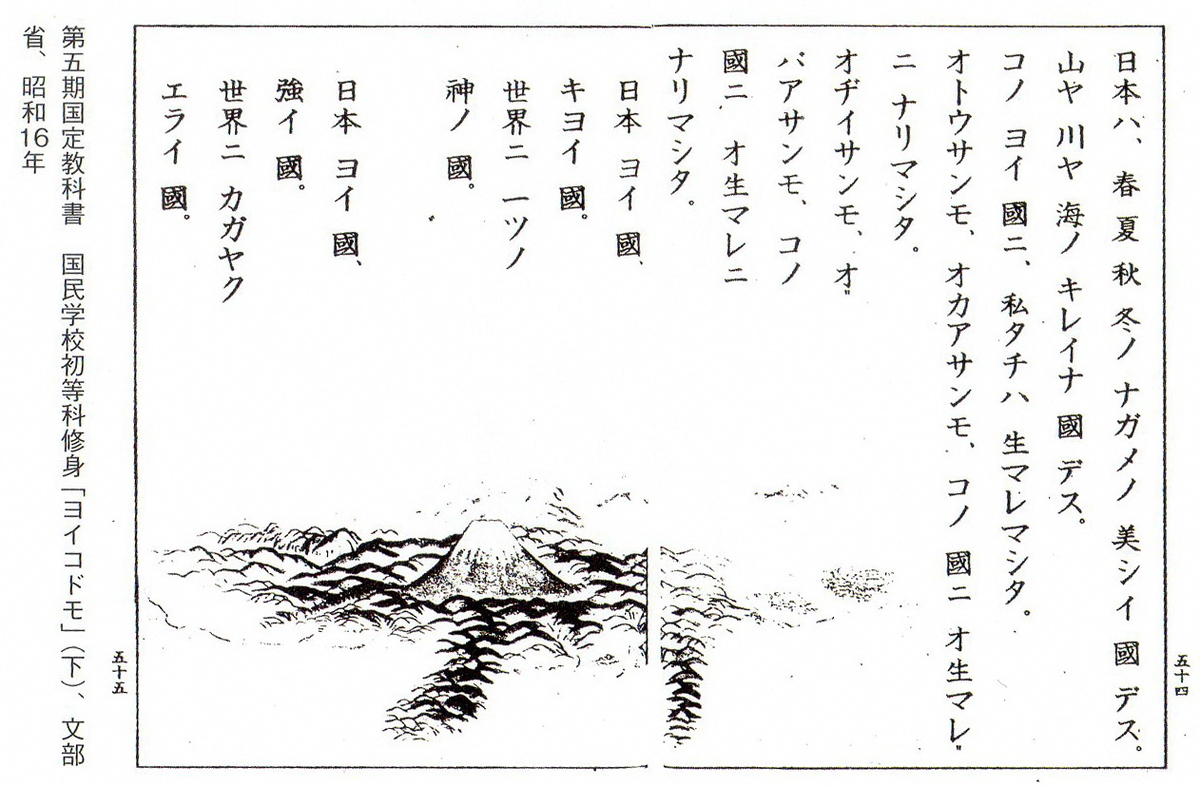 日本ハ、春 夏 秋 冬ノ ナガメノ 美シイ 國 デス。
山ヤ 川ヤ 海ノ キレイナ 國 デス。
コノ ヨイ 國ニ、私タチハ 生マレマシタ。
オトウサンモ、オカアサンモ、コノ 國ニ オ生マレ
ニ ナリマシタ。
オヂイサンモ、オ
バアサンモ、コノ
國ニ オ生マレニ
ナリマシタ。
五十四
日本 ヨイ 國、
キヨイ 國。
世界ニ 一ツノ
神ノ 國。
日本 ヨイ 國、
強イ 國。
世界ニ カガヤク
エライ 國。
五十五
第五期国定教科書 国民学校初等科修身「ヨイコドモ」(下)、文部
省、昭和16年